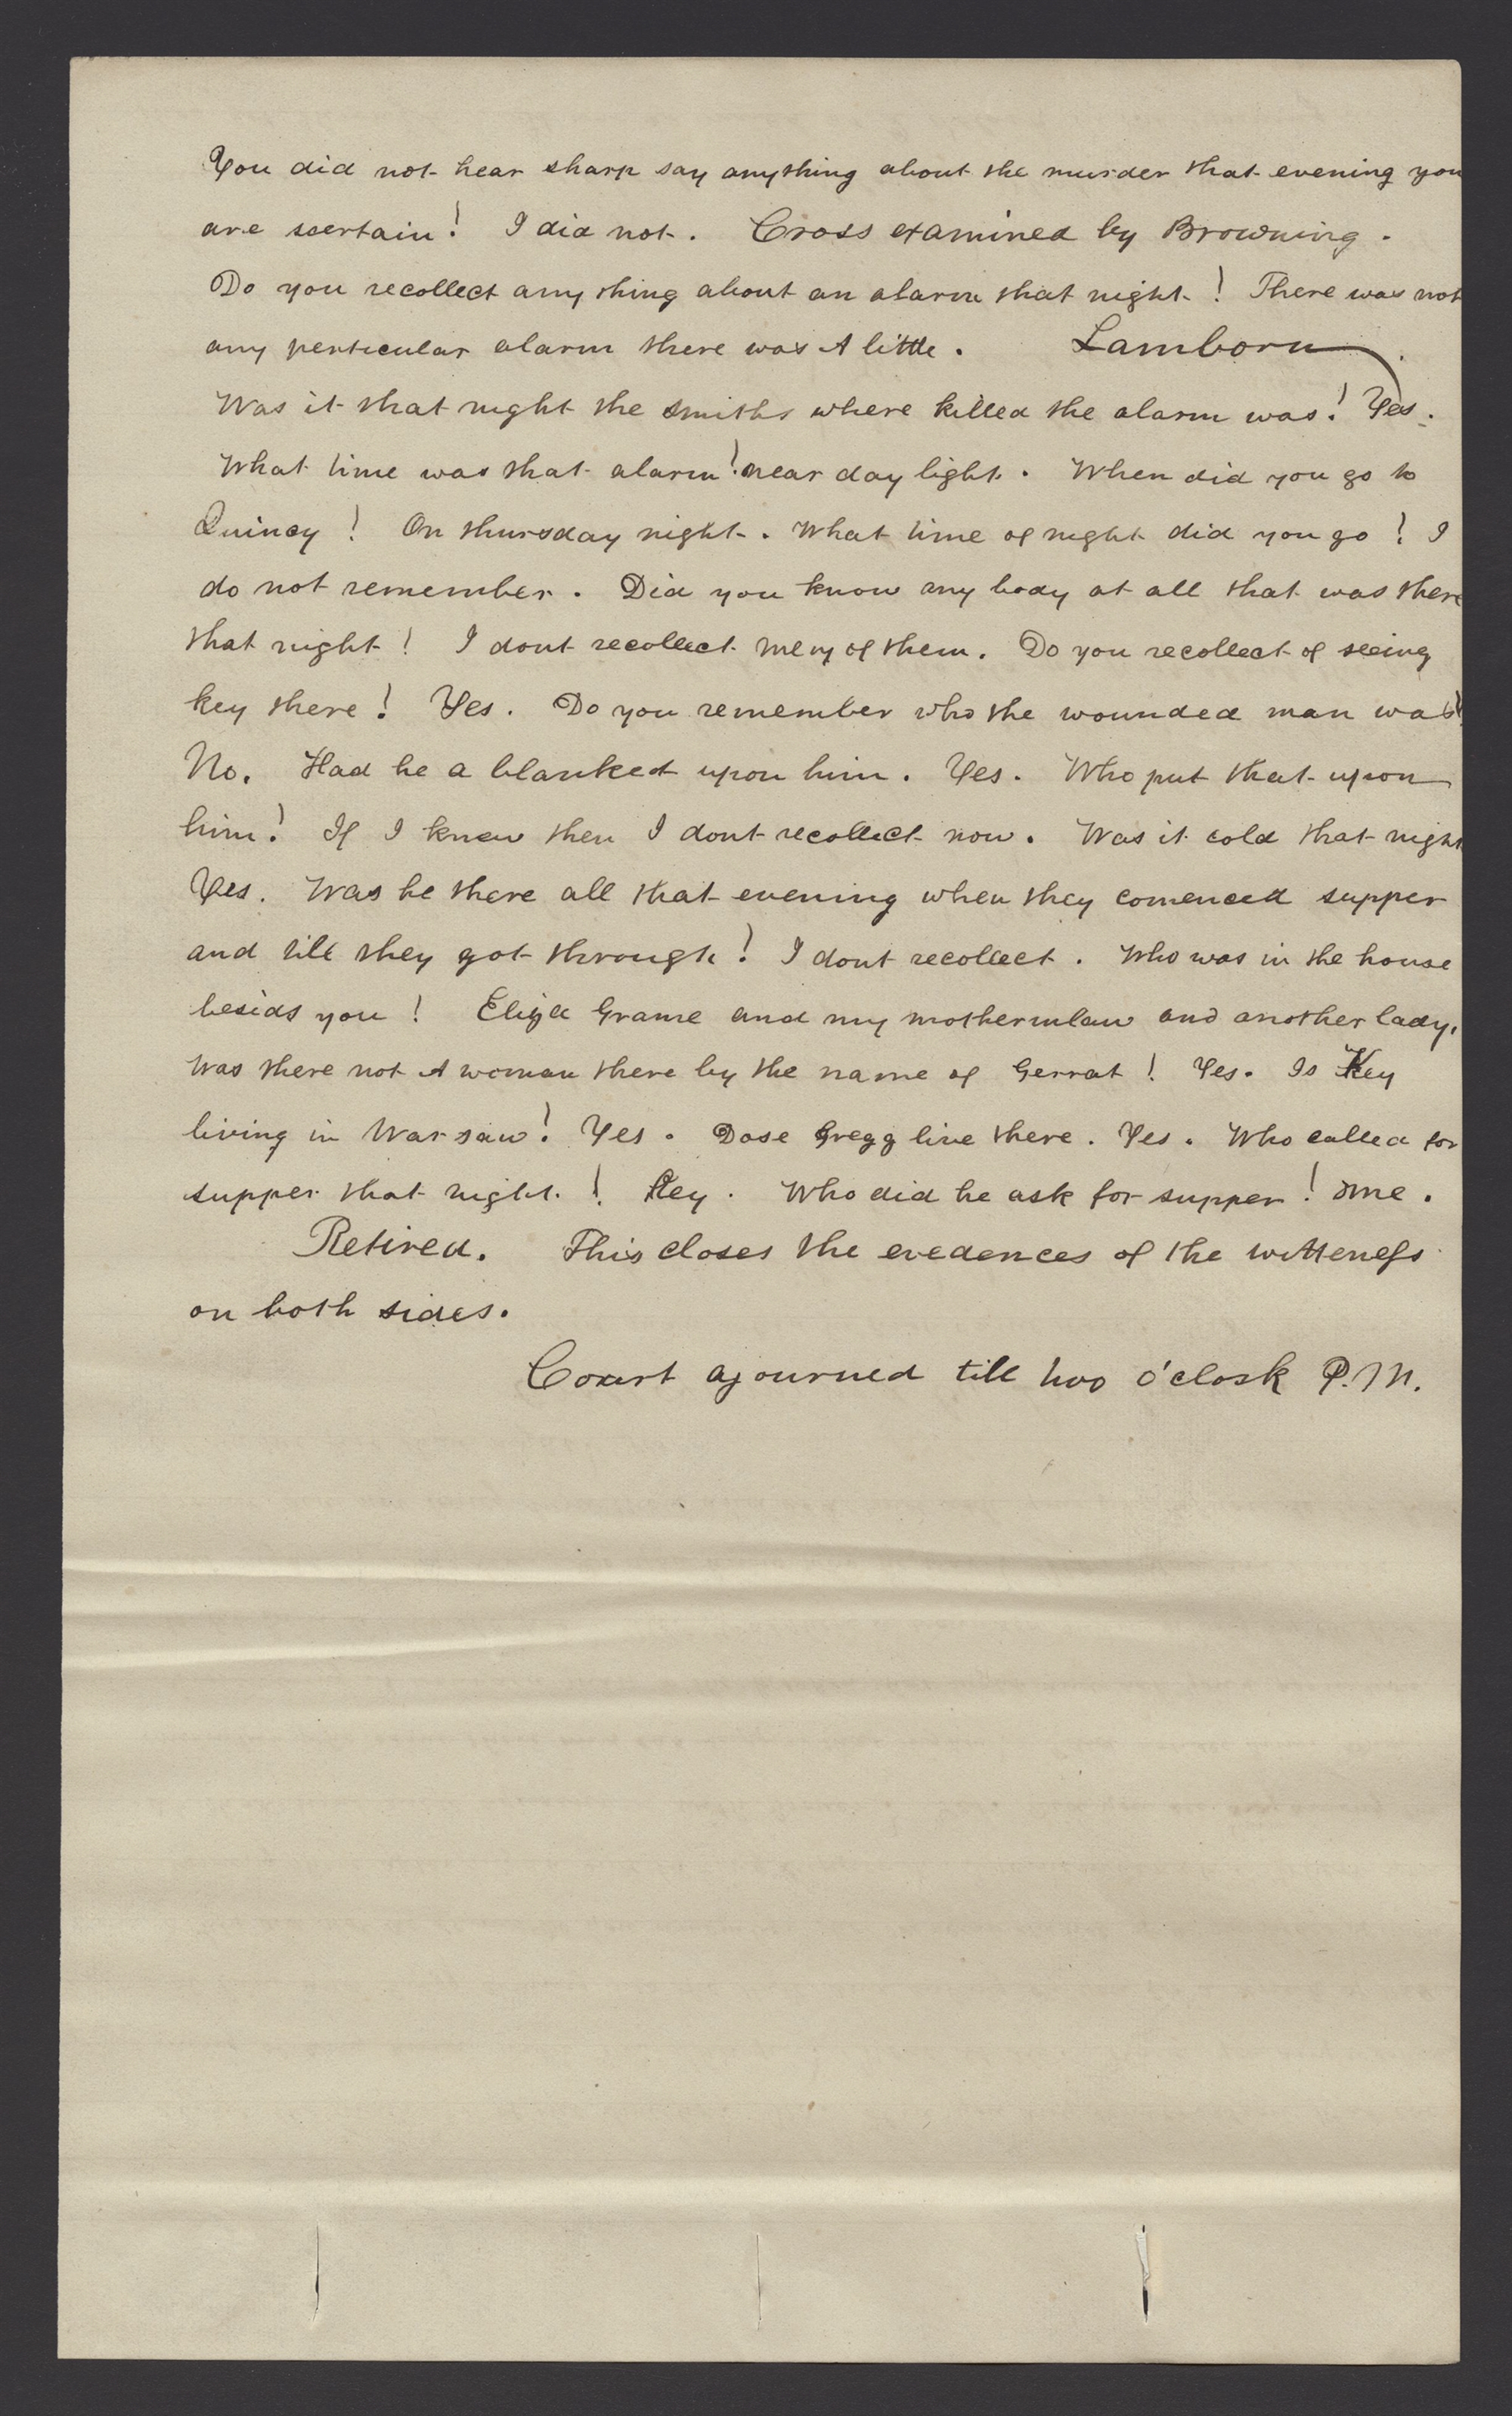 You did not hear sharp say anything about the murder that evening you
are scertain! I did not. Cross examined by Browning.
Do you recollect any thing about an alarm that night! There was not
any perticular alarm there was A little. Lamborn
Was it that night the smiths where killed the alarm was! Yes.
What time was that alarm! near day light. When did you go to
Quincy! On thursday night. What time of night did you go! I
do not remember. Did you know any body at all that was there
that night! I dont recollect meny of them. Do you recollect of seeing
key there! Yes. Do you remember who the wounded man was!
No. Had he a blanked upon him. Yes. Who put that upon
him! If I knew then I dont recollect now. Was it cold that night
Yes. Was he there all that evening when they comenced supper
and till they got through! I dont recollect. Who was in the house
besids you! Eliza Grame and my motherinlaw and another lady.
Was there not A woman there by the name of Gerrat! Yes. Is Key
living in Warsaw! Yes. Dose Gregg live there. Yes. Who called for
supper that night.! Key. Who did he ask for supper! me.
Retired. This closes the evedences of the witteness
on both sides.
Court ajourned till two o'closk P.M.